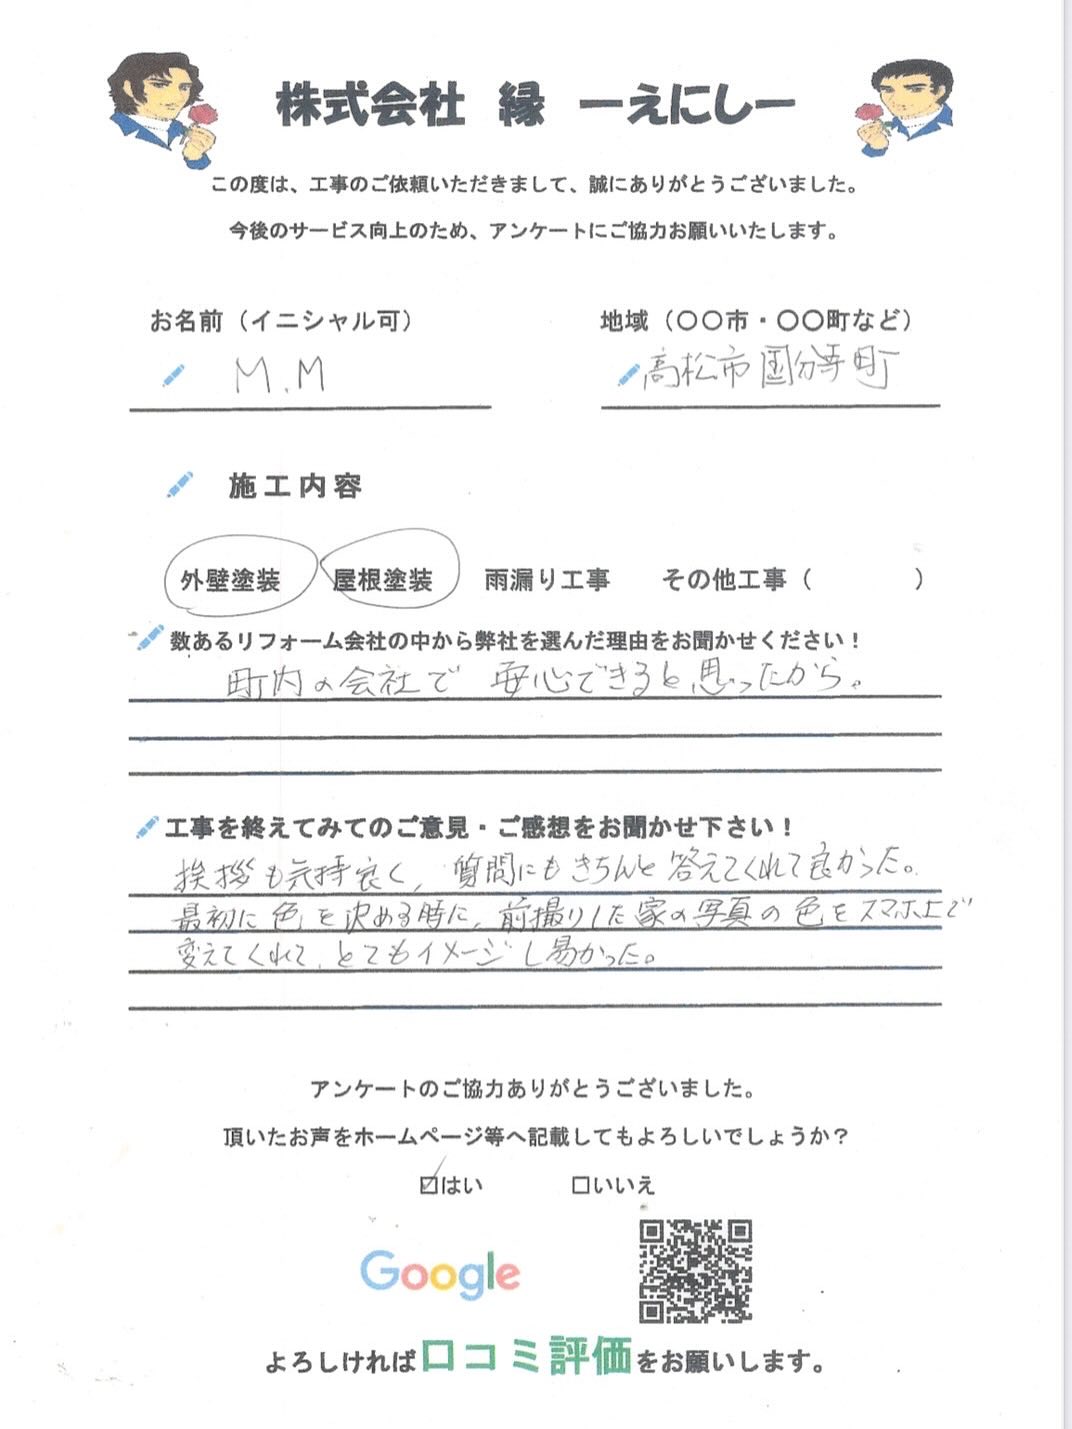 株式会社 縁 ーえにしー
この度は、工事のご依頼いただきまして、誠にありがとうございました。
今後のサービス向上のため、アンケートにご協力お願いいたします。
お名前（イニシャル可）
地域（〇〇市・〇〇町など）
M.M
高松市国分寺町
施工内容
外壁塗装 屋根塗装 雨漏り工事 その他工事（ ）
数あるリフォーム会社の中から弊社を選んだ理由をお聞かせください！
町内の会社で 安心できると思ったから。
工事を終えてみてのご意見・ご感想をお聞かせ下さい！
挨拶も気持良く、質問にもきちんと答えてくれて良かった。
最初に色を決める時に、前撮りした家の写真の色をスマホ上で
変えてくれて、とてもイメージし易かった。
アンケートのご協力ありがとうございました。
頂いたお声をホームページ等へ記載してもよろしいでしょうか？
☑はい □いいえ
Google
よろしければ口コミ評価をお願いします。